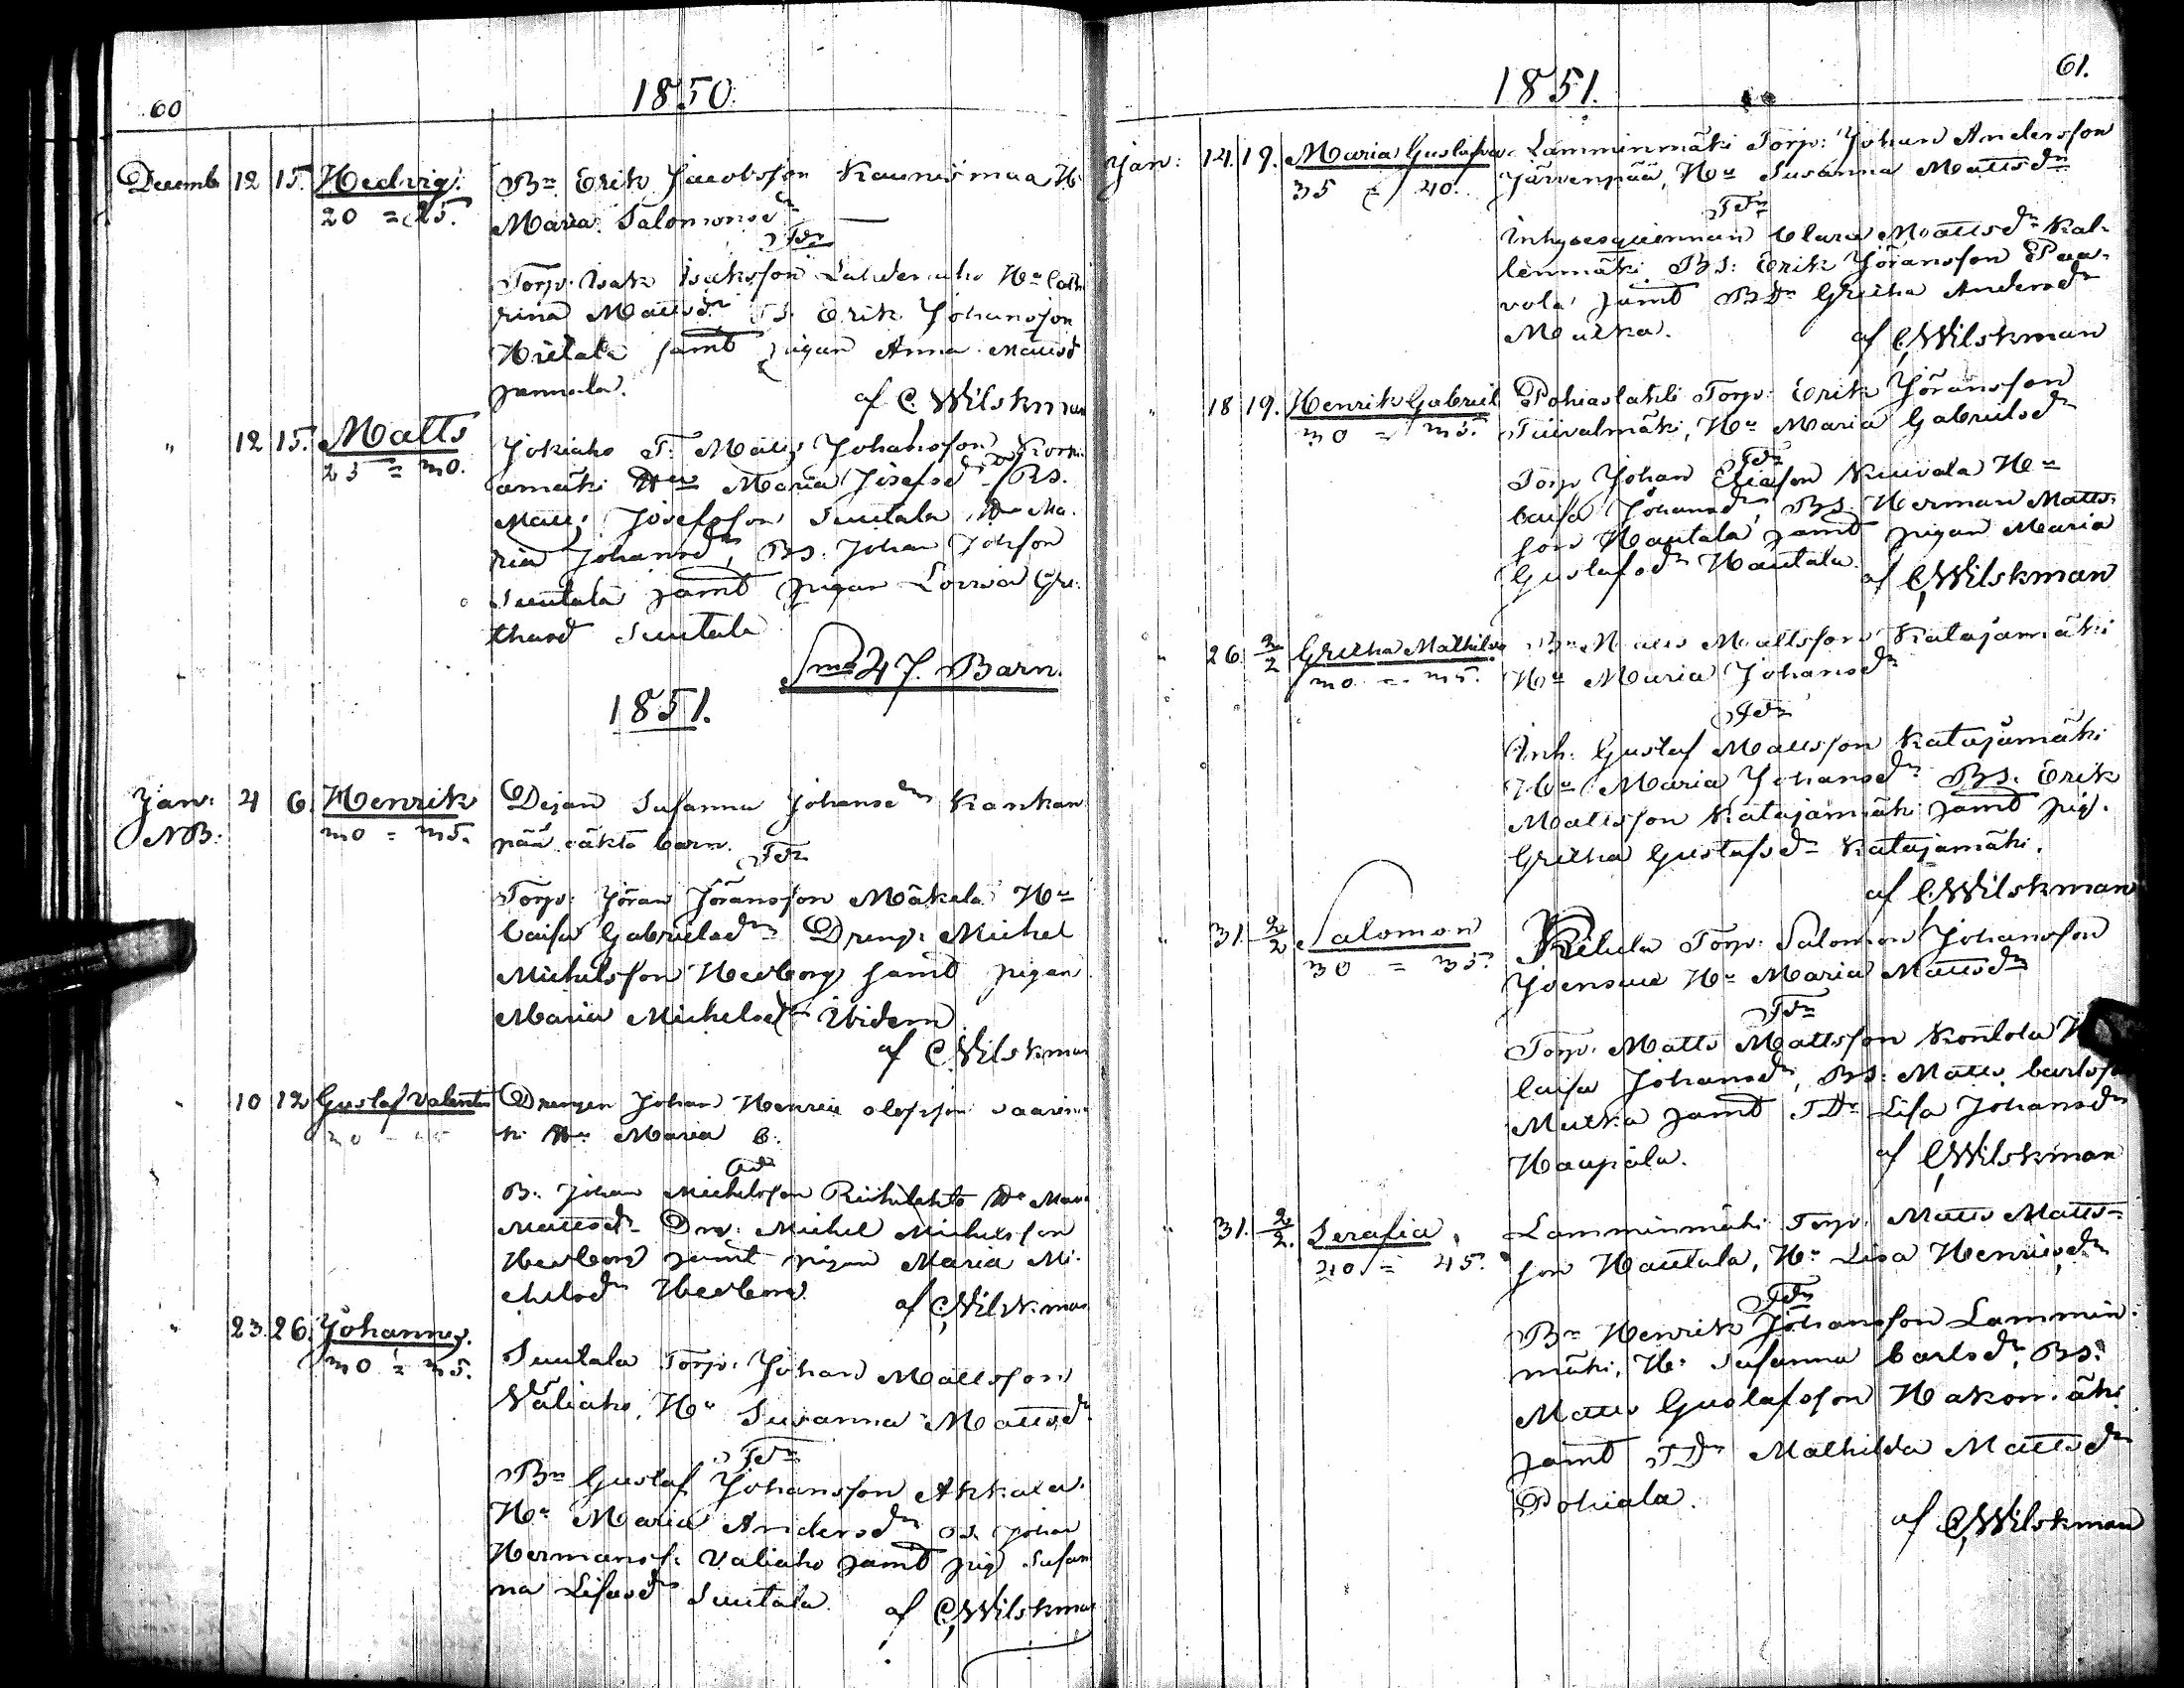 60
1850.
Decemb 12 15. Hedvig. Bn Erik Jacobsson Kaunismaa H
20 = 25. Maria Salomonsdr
Fdr
Torp. Isak Isaksson Hu Cath
rina Mattsdr Erik Johansson
Hietala samt pigan Anna Mattsd
Jannala.
af C. Wilskman
" 12 15. Matts Jokiaho T. Matts Johansson Korki
25 = 30. amäki Hu Maria Josefsdr BS.
Matts Josefsson Suutala Hu Ma-
ria Johansdr, BS. Johan Johsson
Suutala samt pigan Lovisa Gre-
thasd Suutala
Sma 47. Barn.
1851.
Jan: 4 6. Henrik Dejan Susanna Johansdr Kankan
NB: 30 = 35. pää oäkta barn.
Fdr
Torp. Jöran Jöransson Mäkelä Hu
Caisa Gabrielsdr Dreng: Michel
Michelsson Heeborg samt pigan
Maria Michelsdr Ibidem
af C. Wilskman
" 10 12 Gustaf Valentin Drengen Johan Henric Olofsson
Hu Maria C.
B. Johan Michelsson Riihilehto Hu Mari
Mattsdr Drg: Michel Michelsson
Heeborg samt pigan Maria Mi-
chelsdr Heeborg.
af C. Wilskman
" 23. 26. Johannes. Suutala Torp. Johan Mattsson
30 = 35. Väliaho, Hu Susanna Mattsdr
Fdr
Bn Gustaf Johansson Akkala.
Hu Maria Andersdr BS. Johan
Hermanss: Valiaho samt pig Susan
na Lisasdr Suutala.
af C. Wilskman
61.
1851.
Jan: 14. 19. Maria Gustafva Lamminmäki Torp: Johan Andersson
35 = 40. Järvenpää, Hu Susanna Mattsdr
Fdr
Inhysesqvinnan Clara Mattsdr Kal-
lenmäki BS: Erik Jöransson Paa-
vola samt BDr Gretha Andersdr
Mutka.
af C. Wilskman
" 18 19. Henrik Gabriel Pohiaslahti Torp: Erik Jöransson
30 = 35. Tuivalmäki, Hu Maria Gabrielsdr
Fdr
Torp Johan Eliasson Kuivala Hu
Caisa Johansdr, BS. Herman Matts-
son Hautala samt pigan Maria
Gustafsdr Hautala.
af C. Wilskman
" 26. 2/2 Gretha Mathilda Bn Matts Mattsson Katajamäki
30 = 35. Hu Maria Johansdr
Fdr
Inh: Gustaf Mattsson Katajamäki
Hu Maria Johansdr BS. Erik
Mattsson Katajamäki samt pig.
Gretha Gustafsdr Katajamäki.
af C. Wilskman
" 31. 2/2 Salomon Kihula Torp: Salomon Johansson
30 = 35. Joensuu Hu Maria Mattsdr
Fdr
Torp. Matts Mattsson Kontola H
Caisa Johansdr, BS: Matts Carlsso
Mutka samt TDr Lisa Johansdr
Haapala.
af C. Wilskman
" 31. 2/2. Serafia Lamminmäki Torp: Matts Matts-
40 = 45. son Hautala, Hu Lisa Henricsdr
Fdr
Bn Henrik Johansson Lammin-
mäki, Hu Susanna Carlsdr, BS:
Matts Gustafsson Hakomäki
samt TDr Mathilda Mattsdr
Pohiala.
af C. Wilskman